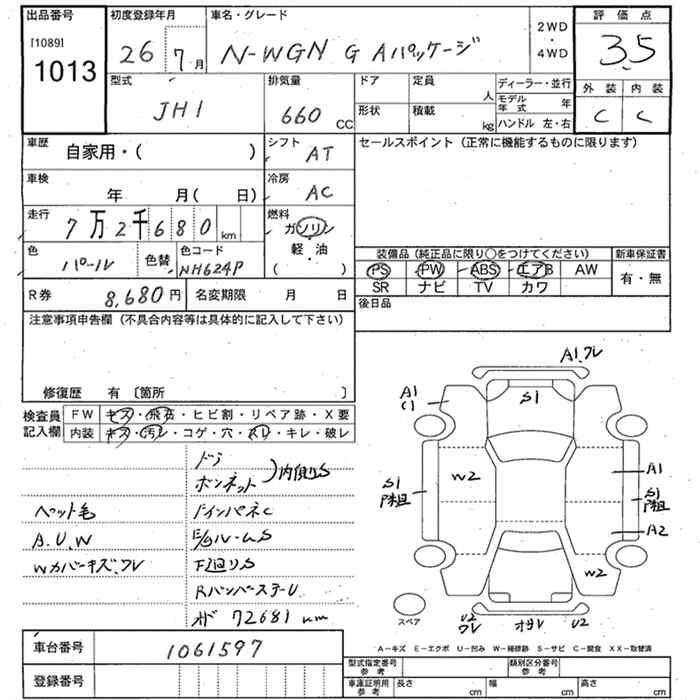 出品番号 初度登録年月 車名・グレード 2WD・4WD 評価点
[1089]
1013 26 7月 N-WGN G Aパッケージ 3.5
型式 排気量 ドア 定員 人 ディーラー・並行 外装 内装
JH1 660 CC 形状 積載 kg モデル年式 年 C C
ハンドル 左・右
車歴 自家用・( ) シフト AT セールスポイント (正常に機能するものに限ります)
車検 年 月( 日) 冷房 AC
走行 7万2千680km 燃料 ガソリン 軽・油 ( )
色 パール 色替 色コード NH624P 装備品 (純正品に限り○をつけてください) 新車保証書
PS PW ABS エアB AW 有・無
R券 8,680円 名変期限 月 日 SR ナビ TV カワ
後日品
注意事項申告欄 (不具合内容等は具体的に記入して下さい)
修復歴 有 〔箇所 〕
検査員記入欄 FW キズ・飛石・ヒビ割・リペア跡・X要
内装 キズ・汚レ・コゲ・穴・スレ・キレ・破レ
ドラ
ボンネット 内側リS
ペット毛 インパネC
A.U.W ルームS
Wカバーキズ、ワレ 下廻りS
RバンパーステーU
オド 72681 km
A1.ワレ
A1
S1
W2 A1
S1 S1
A2
W2
U2 ワレ U2
スペア
A−キズ E−エクボ U−凹み W−補修跡 S−サビ C−腐食 XX−取替済
車台番号 1061597
登録番号
型式指定番号 参考 類別区分番号 参考
車庫証明用 参考 長さ cm 幅 cm 高さ cm